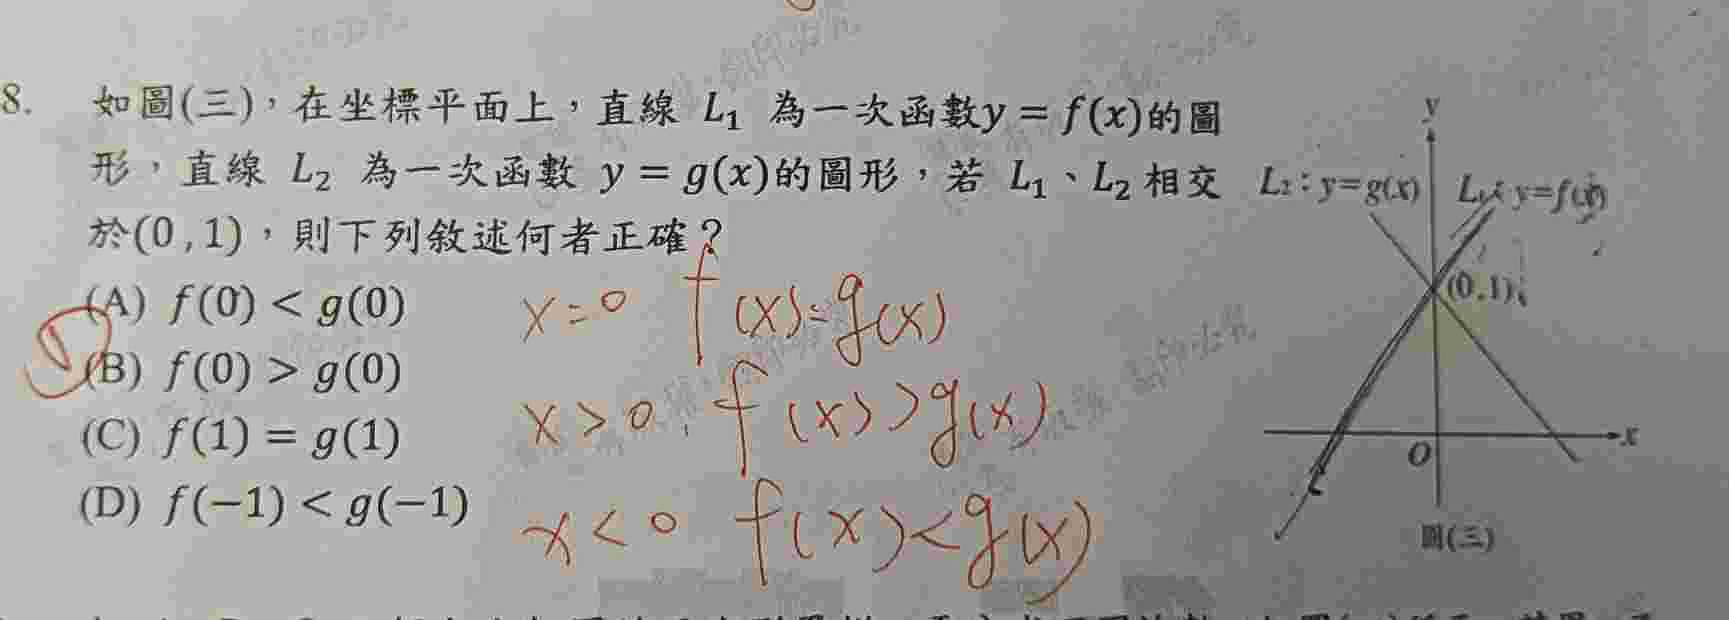 8. 如圖(三)，在坐標平面上，直線 L₁ 為一次函數y = f(x)的圖
形，直線 L₂ 為一次函數 y = g(x)的圖形，若 L₁、L₂ 相交
於(0 , 1)，則下列敘述何者正確？
(A) f(0) < g(0)
(B) f(0) > g(0)
(C) f(1) = g(1)
(D) f(−1) < g(−1)
D
x=0 f(x)=g(x)
x>0, f(x)>g(x)
x<0 f(x)<g(x)
y
L₂：y=g(x) L₁：y=f(x)
(0,1)
O
x
圖(三)